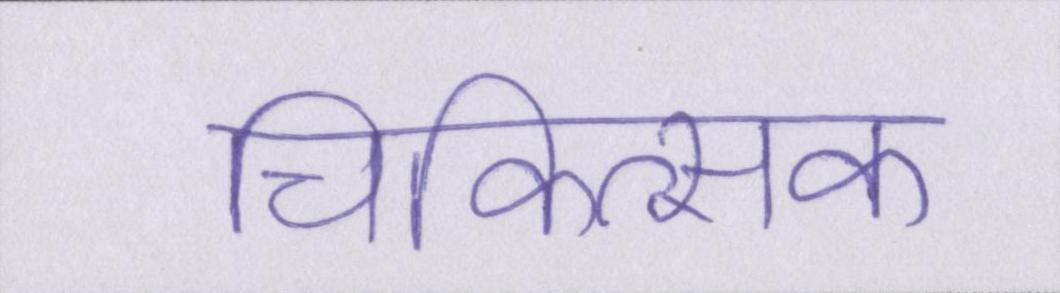 चिकित्सक